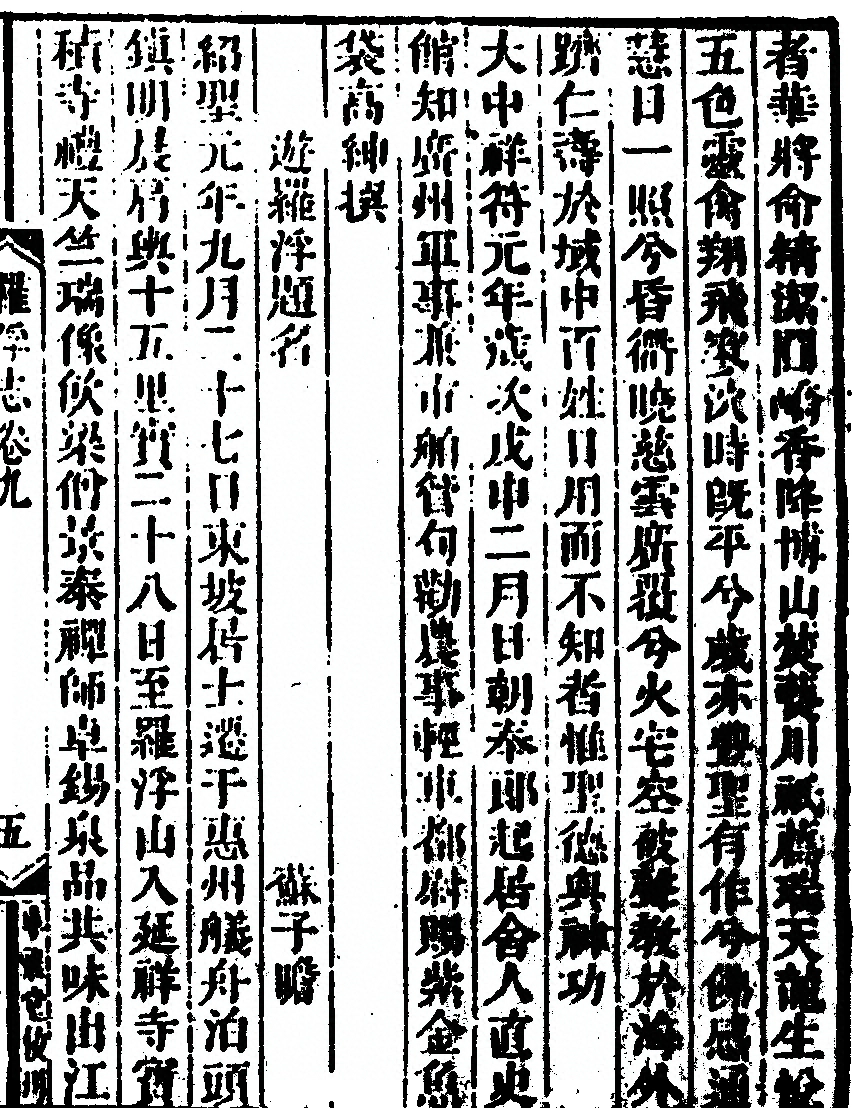 者華將命精潔闢崎香降博山焚
川祇薦瑞天龍生
五色靈禽翔飛寥泬時旣平兮歲亦豐聖有作兮佛感通
慧日一照兮昏衢曉慈雲廣覆兮火宅空敲聲教於海外
躋仁壽於域中百姓日用而不知者惟聖德與神功
大中祥符元年歲次戊申二月日朝奉郎起居舍人直史
館知廣州軍事兼市舶管句勸農事輕車都尉賜紫金魚
袋高紳撰
遊羅浮題名 蘇子瞻
紹聖元年九月二十七日東坡居士遷于惠州艤舟泊頭
鎮明晨肩輿十五里寶二十八日至羅浮山入延祥寺寶
積寺禮天竺瑞像飲梁僧景泰禪師卓錫泉品其味出江
羅浮志卷九 五